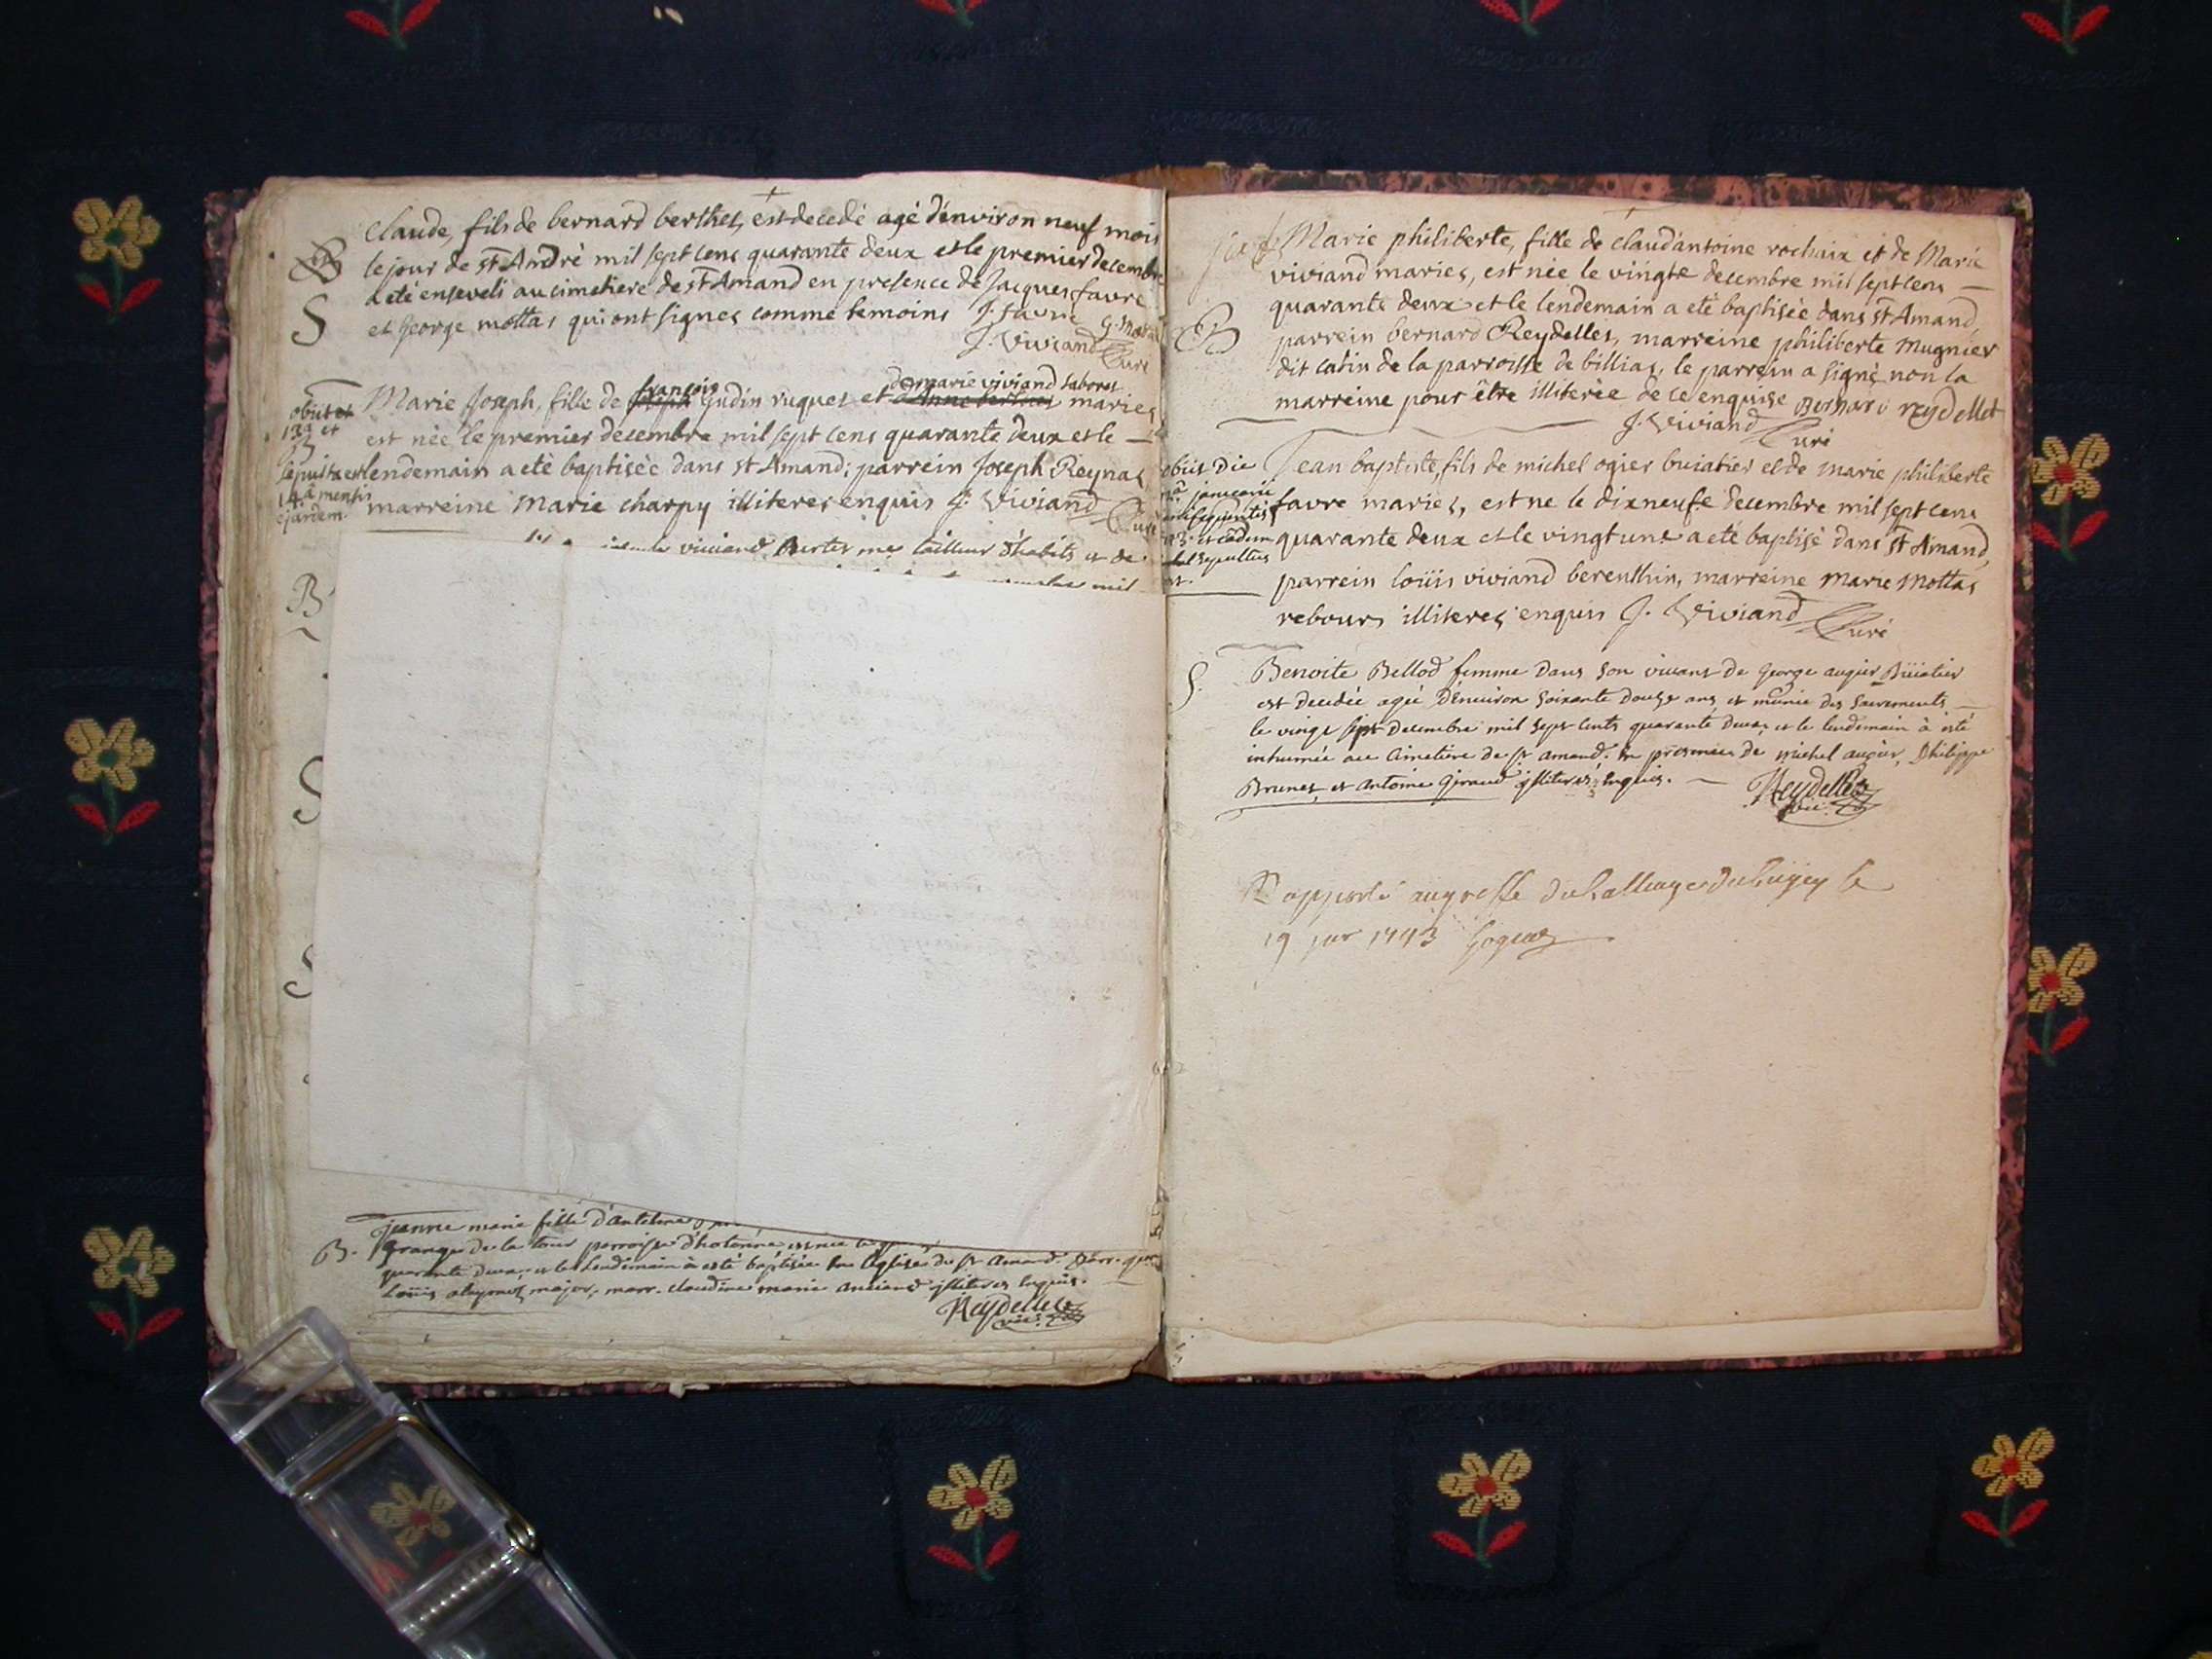 Claude, fils de bernard berthet, est decedé agé d'environ neuf mois
le jour de st André mil sept cens quarante deux et le premier decembre
a eté enseveli au cimetiere de st Amand en presence de Jacques favre
et George mottas qui ont signes comme temoins J. favre G. mottas
S
J. Viviand Curé
françois de marie viviand
Marie Joseph, fille de Gudin ruques et Anne maries
est née le premier decembre mil sept cens quarante deux et le
lendemain a eté baptisée dans st Amand; parrein Joseph Reynas
marreine Marie charpy illiteres enquis J. Viviand
Curé
obiit
13a et
B
sepulta est
14a mensis
ejusdem
viviand me tailleur d'habits et de
mil
B
S
S
Jeanne marie fille d'antelme
B. grange de la tour parroisse d'hotonne
quarante deux, et le Lendemain à esté baptisée en Eglise de st Amand. parr.
Loüis major, marr. claudine marie illiteres Enquis.
Reydellet
vic.
Marie philiberte, fille de claud'antoine rochaix et de Marie
viviand maries, est née le vingte decembre mil sept cens
quarante deux et le lendemain a eté baptisée dans st Amand,
B
parrein bernard Reydelles, marreine philiberte Mugnier
dit catin de la parroisse de billias, le parrein a signé non la
marreine pour être illiterée de ce enquise Bernard reydellet
J. Viviand Curé
Jean baptiste, fils de michel ogier buiatier et de marie philiberte
favre maries, est ne le dixneufe decembre mil sept cens
quarante deux et le vingtune a eté baptisé dans st Amand,
parrein loüis viviand berenthin, marreine Marie Mottas
rebours illiteres enquis J. Viviand
Curé
obiit Die
januarii
sequentis
et eadem
sepultus
S. Benoite Bellod femme Dans son vivant de George augier Büiatier
est Decedée agée D'environ soixante Douze ans, et munie des sacrements
le vingt sept Decembre mil sept cents quarante deux, et le lendemain à esté
inhumée au cimetiere de st amand. En presence de michel augier, Philippe
Brunet, et antoine Giraud illiteres Enquis.
Reydellet
vic.
Rapporté au greffe du balliage du Bugey le
19 1743